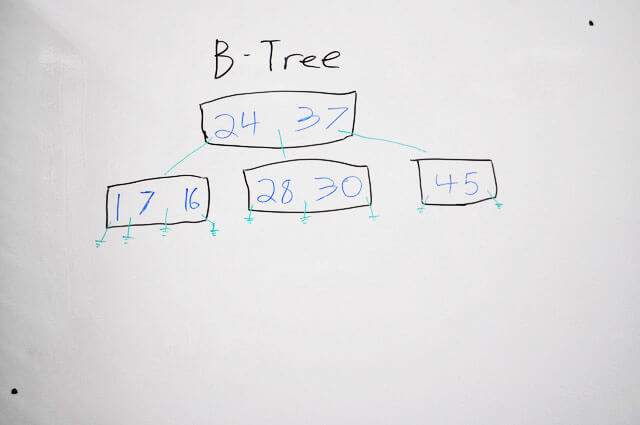 B-Tree
24 37
1 7 16
28 30
45